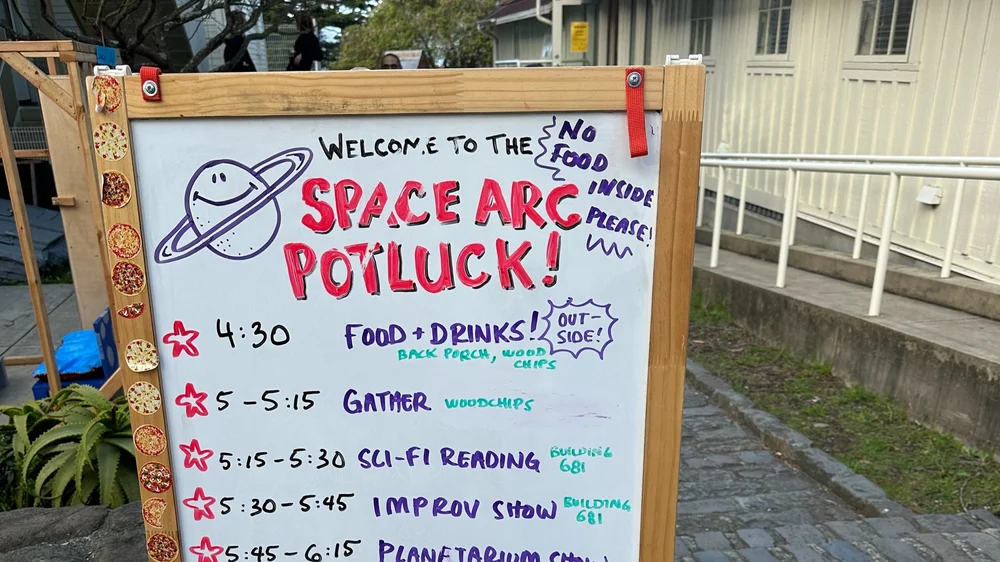 WELCOME TO THE
SPACE ARC
POTLUCK!
NO
FOOD
INSIDE
PLEASE!
4:30 FOOD + DRINKS!
OUT-
SIDE!
BACK PORCH, WOOD
CHIPS
5 - 5:15 GATHER WOODCHIPS
5:15 - 5:30 SCI-FI READING BUILDING
681
5:30 - 5:45 IMPROV SHOW BUILDING
681
5:45 - 6:15 PLANETARIUM SHOW